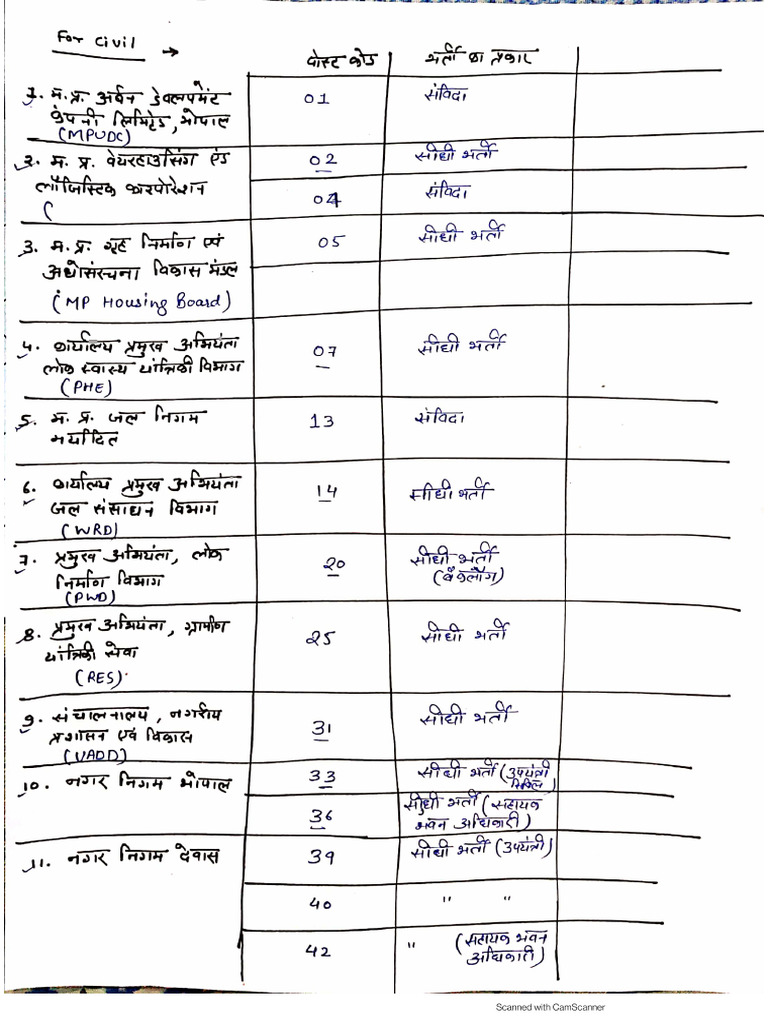 For Civil →
पोस्ट कोड भर्ती का प्रकार
1. म.प्र. अर्बन डेवलपमेंट 01 संविदा
कंपनी लिमिटेड, भोपाल
(MPUDC)
2. म.प्र. वेयरहाउसिंग एंड 02 सीधी भर्ती
लॉजिस्टिक कारपोरेशन 04 संविदा
(
3. म.प्र. गृह निर्माण एवं 05 सीधी भर्ती
अधोसंरचना विकास मंडल
(MP Housing Board)
4. कार्यालय प्रमुख अभियंता 07 सीधी भर्ती
लोक स्वास्थ्य यांत्रिकी विभाग
(PHE)
5. म.प्र. जल निगम 13 संविदा
मर्यादित
6. कार्यालय प्रमुख अभियंता 14 सीधी भर्ती
जल संसाधन विभाग
(WRD)
7. प्रमुख अभियंता, लोक 20 सीधी भर्ती
निर्माण विभाग (बैकलॉग)
(PWD)
8. प्रमुख अभियंता, ग्रामीण 25 सीधी भर्ती
यांत्रिकी सेवा
(RES)
9. संचालनालय, नगरीय 31 सीधी भर्ती
प्रशासन एवं विकास
(UADD)
10. नगर निगम भोपाल 33 सीधी भर्ती (उपयंत्री
सिविल)
36 सीधी भर्ती (सहायक
भवन अधिकारी)
11. नगर निगम देवास 39 सीधी भर्ती (उपयंत्री)
40 " "
42 " (सहायक भवन
अधिकारी)
Scanned with CamScanner